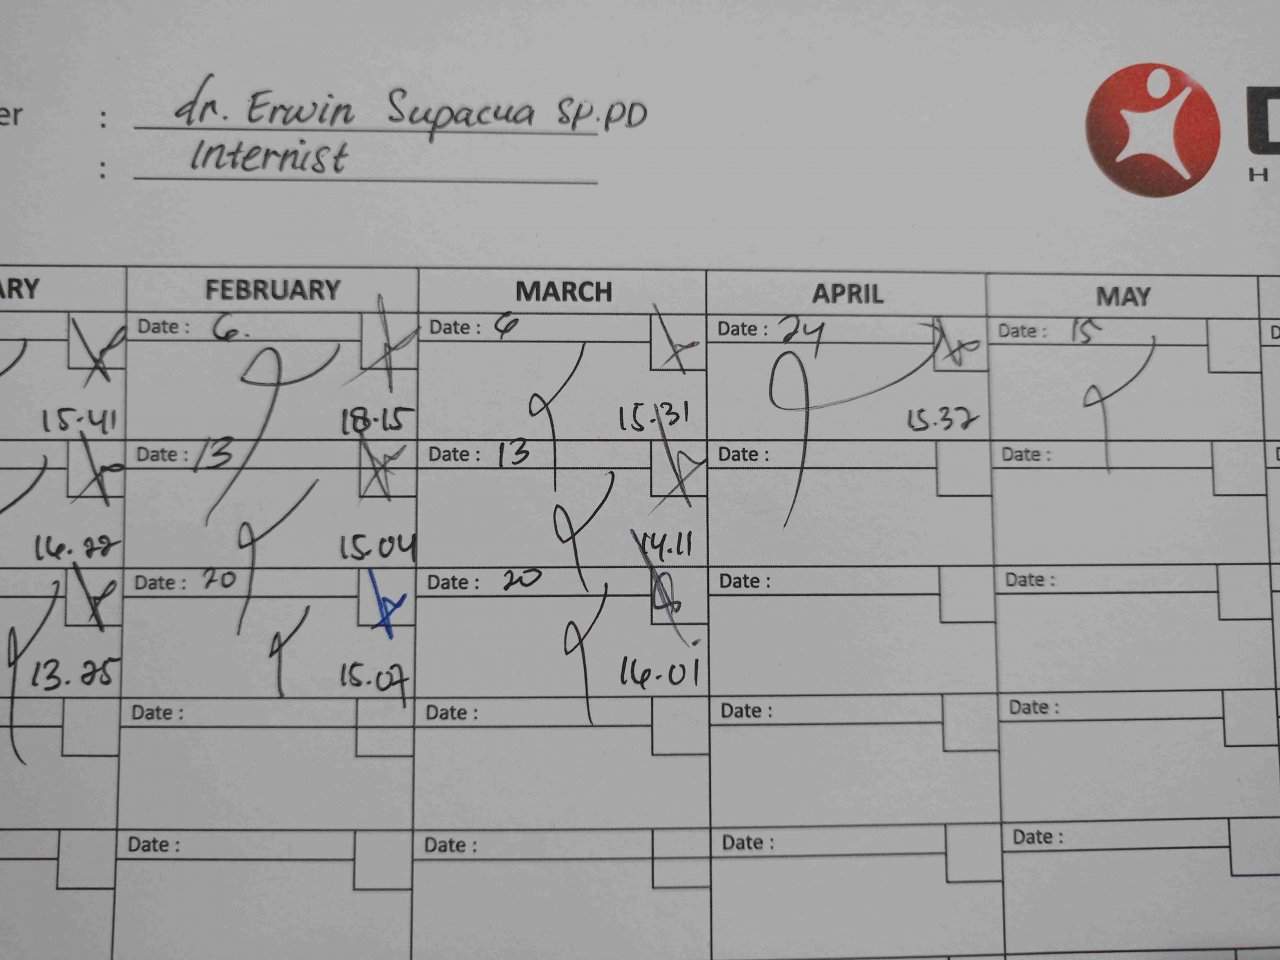 er : dr. Erwin Supacua SP.PD
: Internist
D
H
ARY FEBRUARY MARCH APRIL MAY
Date : 6. Date : 6 Date : 24 Date : 15 D
15.41 18.15 15.31 15.37
Date : 13 Date : 13 Date : Date : D
16.22 15.04 14.11
Date : 20 Date : 20 Date : Date :
13.25 15.07 16.01
Date : Date : Date : Date :
Date : Date : Date : Date :